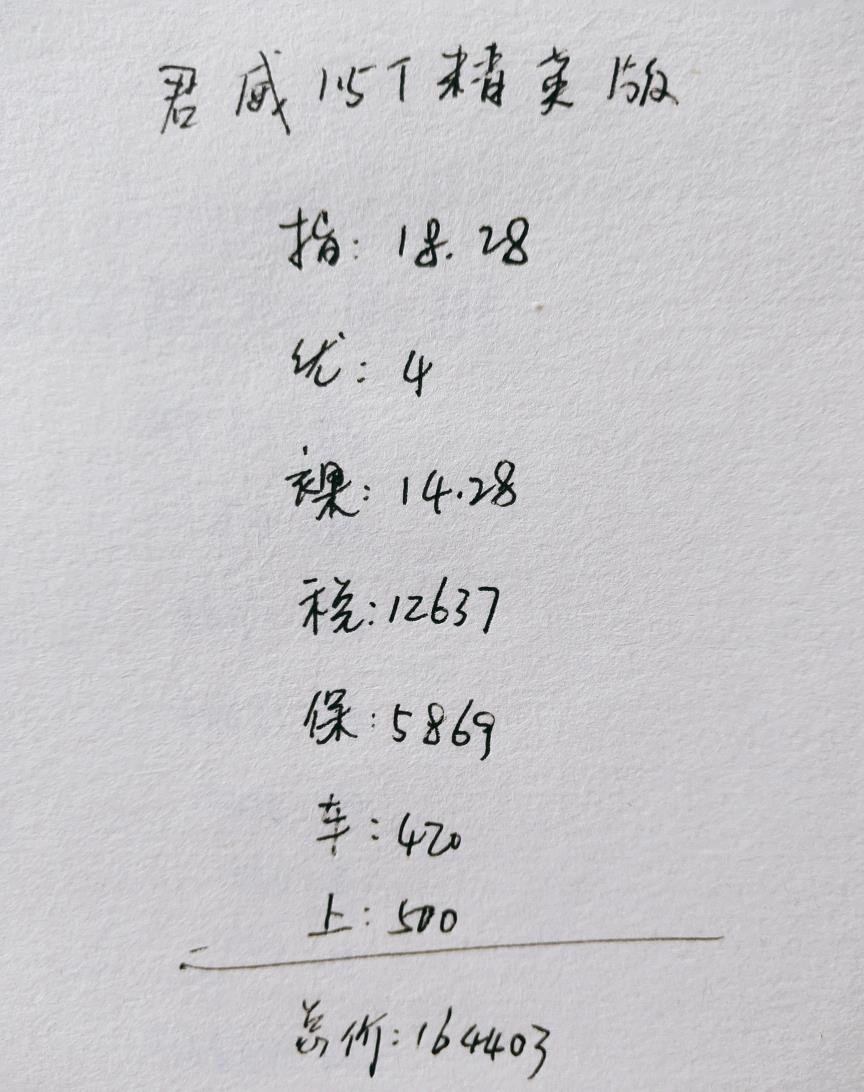 君威1.5T精英版
指:18.28
优:4
裸:14.28
税:12637
保:5869
车:420
上:500
总价:164403